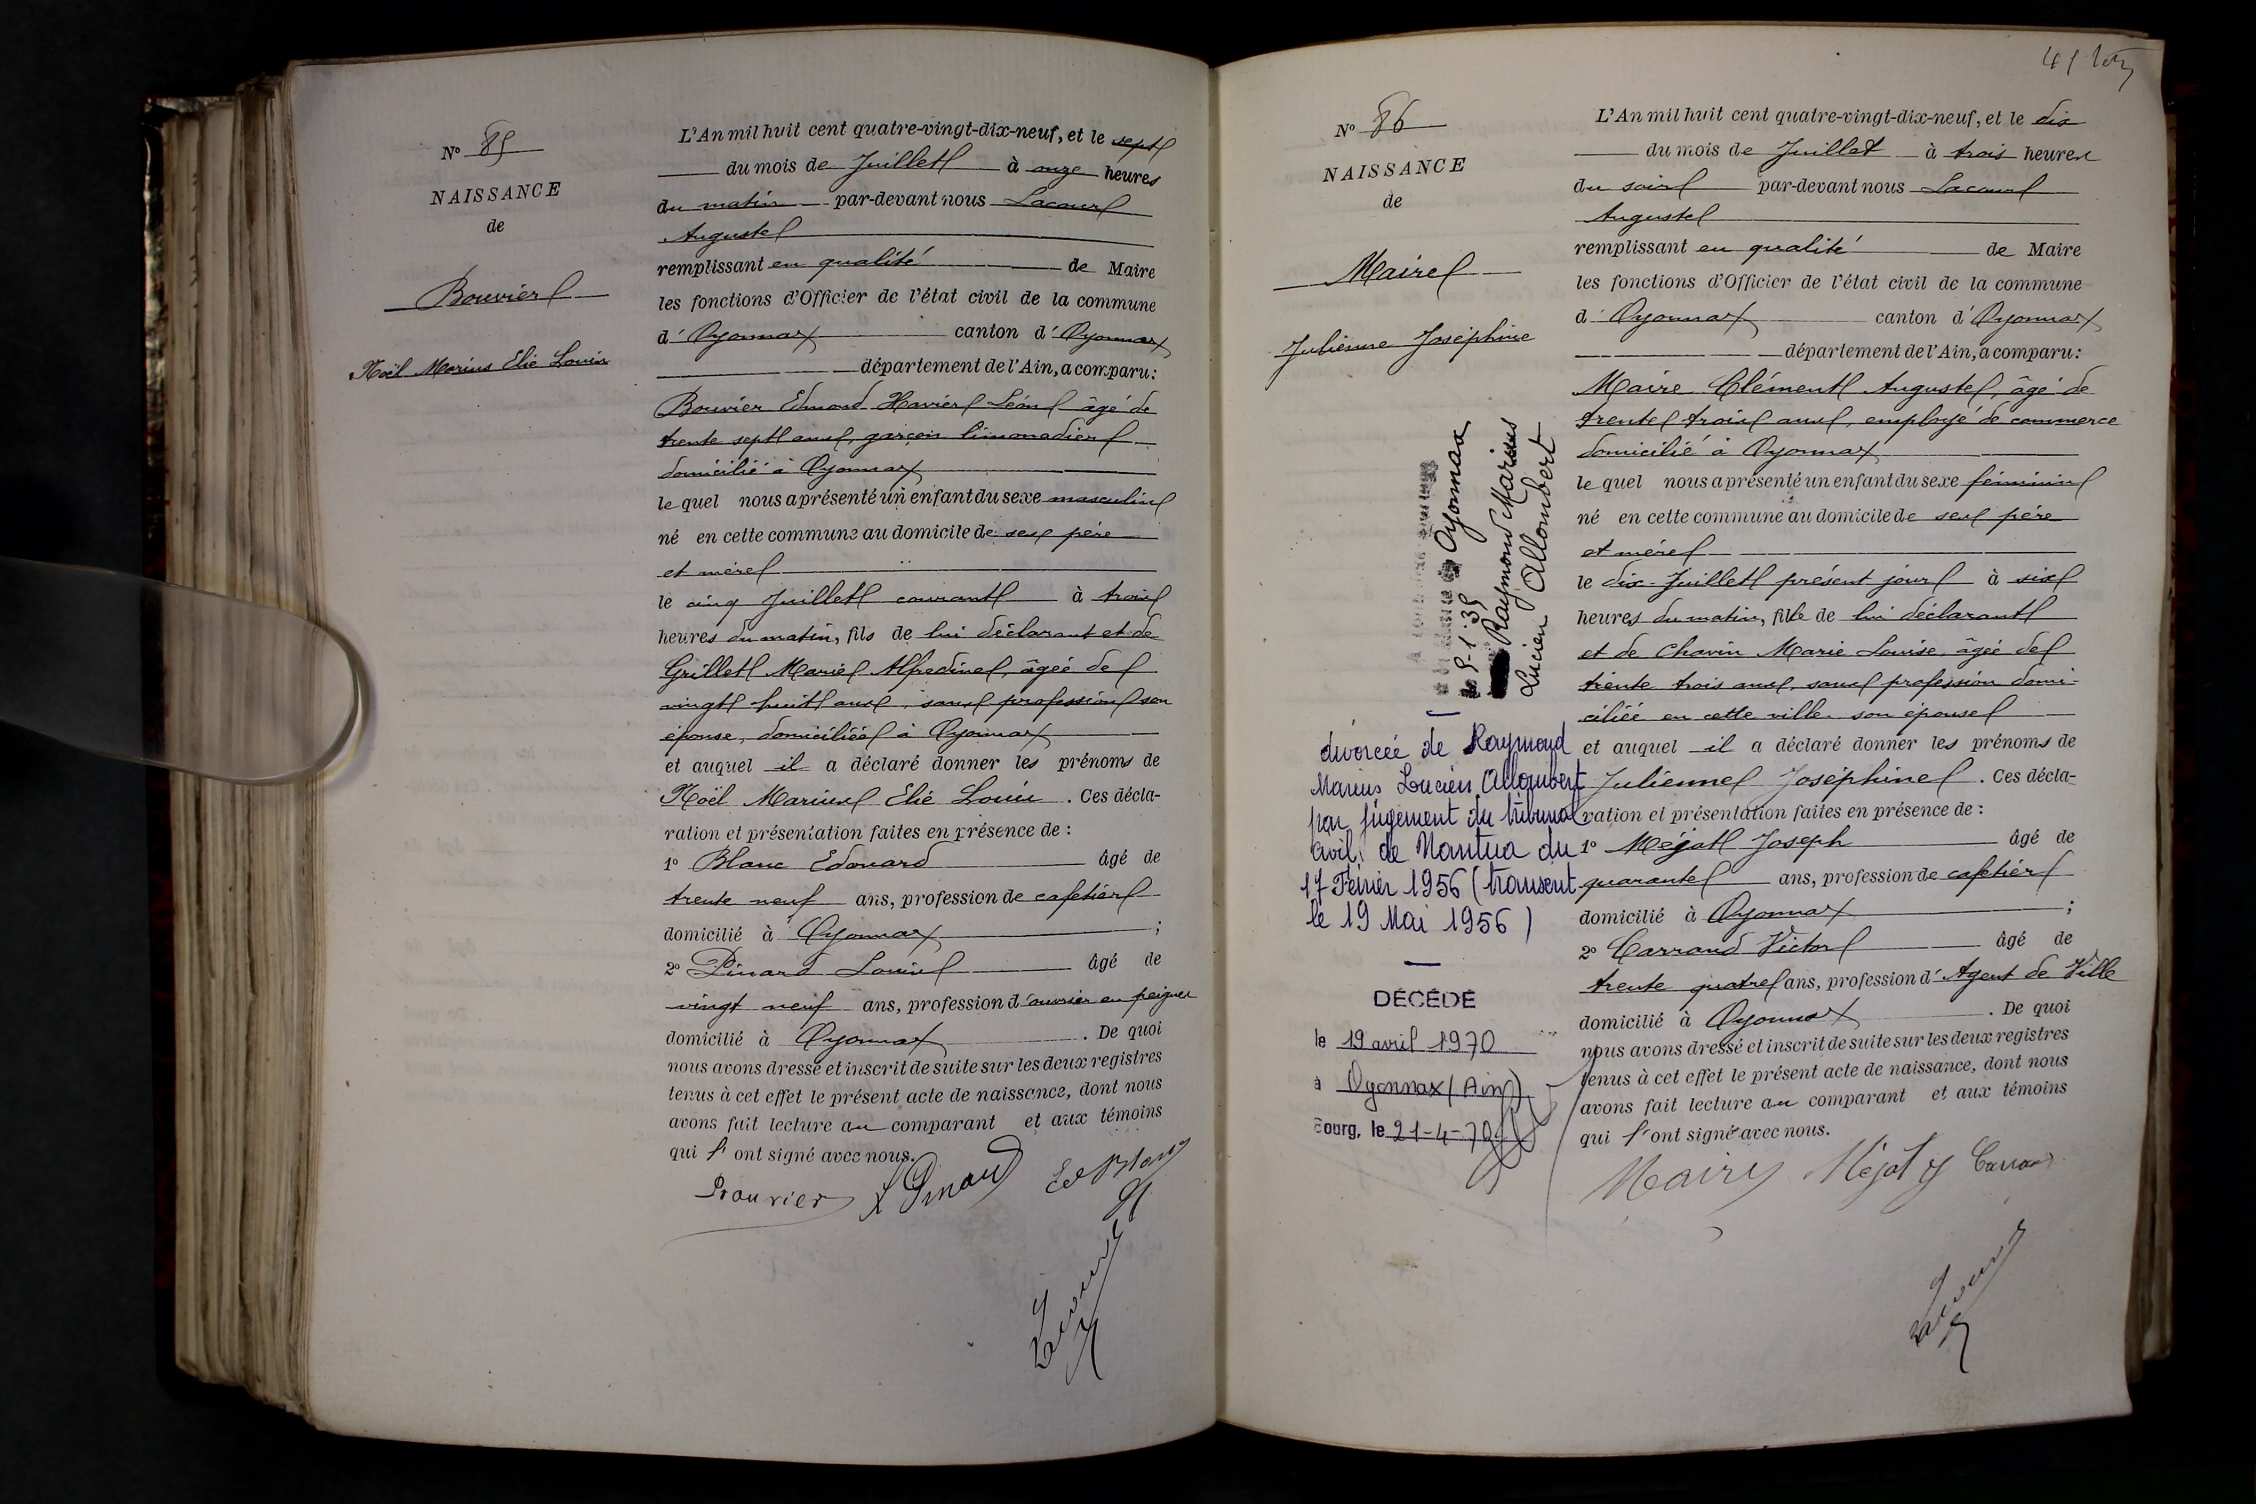 N° 85
NAISSANCE
de
Bouvier
Noël Marius Elie Louis
L'An mil huit cent quatre-vingt-dix-neuf, et le sept
du mois de Juillet à onze heures
du matin par-devant nous Lacour
Auguste
remplissant en qualité de Maire
les fonctions d'Officier de l'état civil de la commune
d' Oyonnax canton d' Oyonnax
département de l'Ain, a comparu :
Bouvier Edmond Xavier Léon âgé de
trente sept ans, garçon limonadier
domicilié à Oyonnax
le quel nous a présenté un enfant du sexe masculin
né en cette commune au domicile de ses père
et mère
le cinq Juillet courant à trois
heures du matin, fils de lui déclarant et de
Grillet Marie Alfredine, âgée de
vingt huit ans, sans profession son
épouse, domiciliée à Oyonnax
et auquel il a déclaré donner les prénoms de
Noël Marius Elie Louis . Ces décla-
ration et présentation faites en présence de :
1° Blanc Edouard âgé de
trente neuf ans, profession de cafetier
domicilié à Oyonnax ;
2° Pinard Louis âgé de
vingt neuf ans, profession d'ouvrier en peignes
domicilié à Oyonnax . De quoi
nous avons dressé et inscrit de suite sur les deux registres
tenus à cet effet le présent acte de naissance, dont nous
avons fait lecture au comparant et aux témoins
qui l' ont signé avec nous.
Bouvier L Pinard Ed Blanc
N° 86
NAISSANCE
de
Maire
Julienne Joséphine
Oyonnax
Raymond Marius
Lucien Allombert
divorcée de Raymond
Marius Lucien Allombert
par jugement du tribunal
civil de Nantua du
17 Février 1956 (transcrit
le 19 Mai 1956)
DÉCÉDÉ
le 19 avril 1970
à Oyonnax (Ain)
Bourg, le 21-4-70
L'An mil huit cent quatre-vingt-dix-neuf, et le dix
du mois de Juillet à trois heures
du soir par-devant nous Lacour
Auguste
remplissant en qualité de Maire
les fonctions d'Officier de l'état civil de la commune
d' Oyonnax canton d' Oyonnax
département de l'Ain, a comparu :
Maire Clément Auguste, âgé de
trente trois ans, employé de commerce
domicilié à Oyonnax
le quel nous a présenté un enfant du sexe féminin
né en cette commune au domicile de ses père
et mère
le dix Juillet présent jour à six
heures du matin, fille de lui déclarant
et de Chavin Marie Louise, âgée de
trente trois ans, sans profession domi-
ciliée en cette ville son épouse
et auquel il a déclaré donner les prénoms de
Julienne Joséphine . Ces décla-
ration et présentation faites en présence de :
1° Méjat Joseph âgé de
quarante ans, profession de cafetier
domicilié à Oyonnax ;
2° Carrand Victor âgé de
trente quatre ans, profession d'Agent de Ville
domicilié à Oyonnax . De quoi
nous avons dressé et inscrit de suite sur les deux registres
tenus à cet effet le présent acte de naissance, dont nous
avons fait lecture au comparant et aux témoins
qui l' ont signé avec nous.
Maire Méjat Carrand